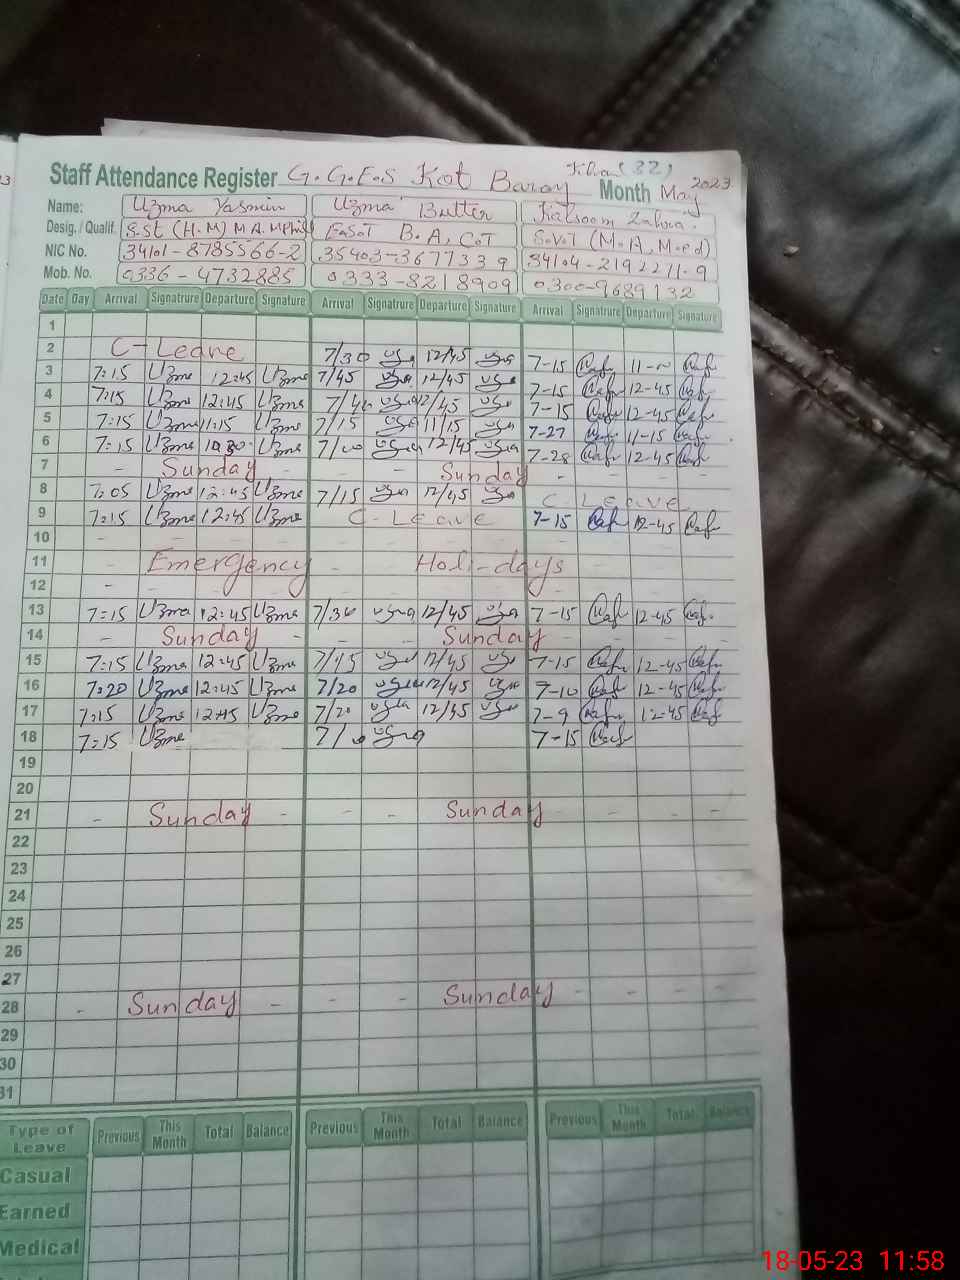 Staff Attendance Register G.G.E.S Kot Baray Khas (32) Month May 2023
Name: Uzma Yasmin Uzma Butter Kalsoom Zahra
Desig. / Qualif. S.St (H.M) M.A. MPhil E.S.T B.A, C.T S.V.T (M.A, M.ed)
NIC No. 34101-8785566-2 35403-3677339 34104-2192271-9
Mob. No. 0336-4732885 0333-8218909 0300-9689132
Date Day Arrival Signatrure Departure Signature Arrival Signatrure Departure Signature Arrival Signatrure Departure Signature
1
2 C-Leave 7/30 12/45 7-15 11-
3 7:15 Uzma 12:45 Uzma 7/45 12/45 7-15 12-45
4 7:15 Uzma 12:45 Uzma 12/45 7-15 12-45
5 7:15 Uzma 11:15 Uzma 7/15 11/15 7-27 11-15
6 7:15 Uzma Uzma 12/45 7-28 12-45
7 - Sunday - - Sunday - - -
8 7:05 Uzma 12:45 Uzma 7/15 12/45 C-Leave
9 7:15 Uzma 12:45 Uzma C-Leave 7-15 12-45
10
11 Emergency Holi-days
12
13 7:15 Uzma 12:45 Uzma 7/30 12/45 7-15 12-45
14 - Sunday - - Sunday - - -
15 7:15 Uzma 12:45 Uzma 7/15 12/45 7-15 12-45
16 7:20 Uzma 12:45 Uzma 7/20 12/45 7-10 12-45
17 7:15 Uzma 12:45 Uzma 7/20 12/45 7-9 12-45
18 7:15 Uzma 7-15
19
20
21 - Sunday - - - Sunday - - - -
22
23
24
25
26
27
28 - Sunday - - - Sunday - - - -
29
30
31
Type of Leave Previous This Month Total Balance Previous This Month Total Balance Previous This Month Total Balance
Casual
Earned
Medical
18-05-23 11:58